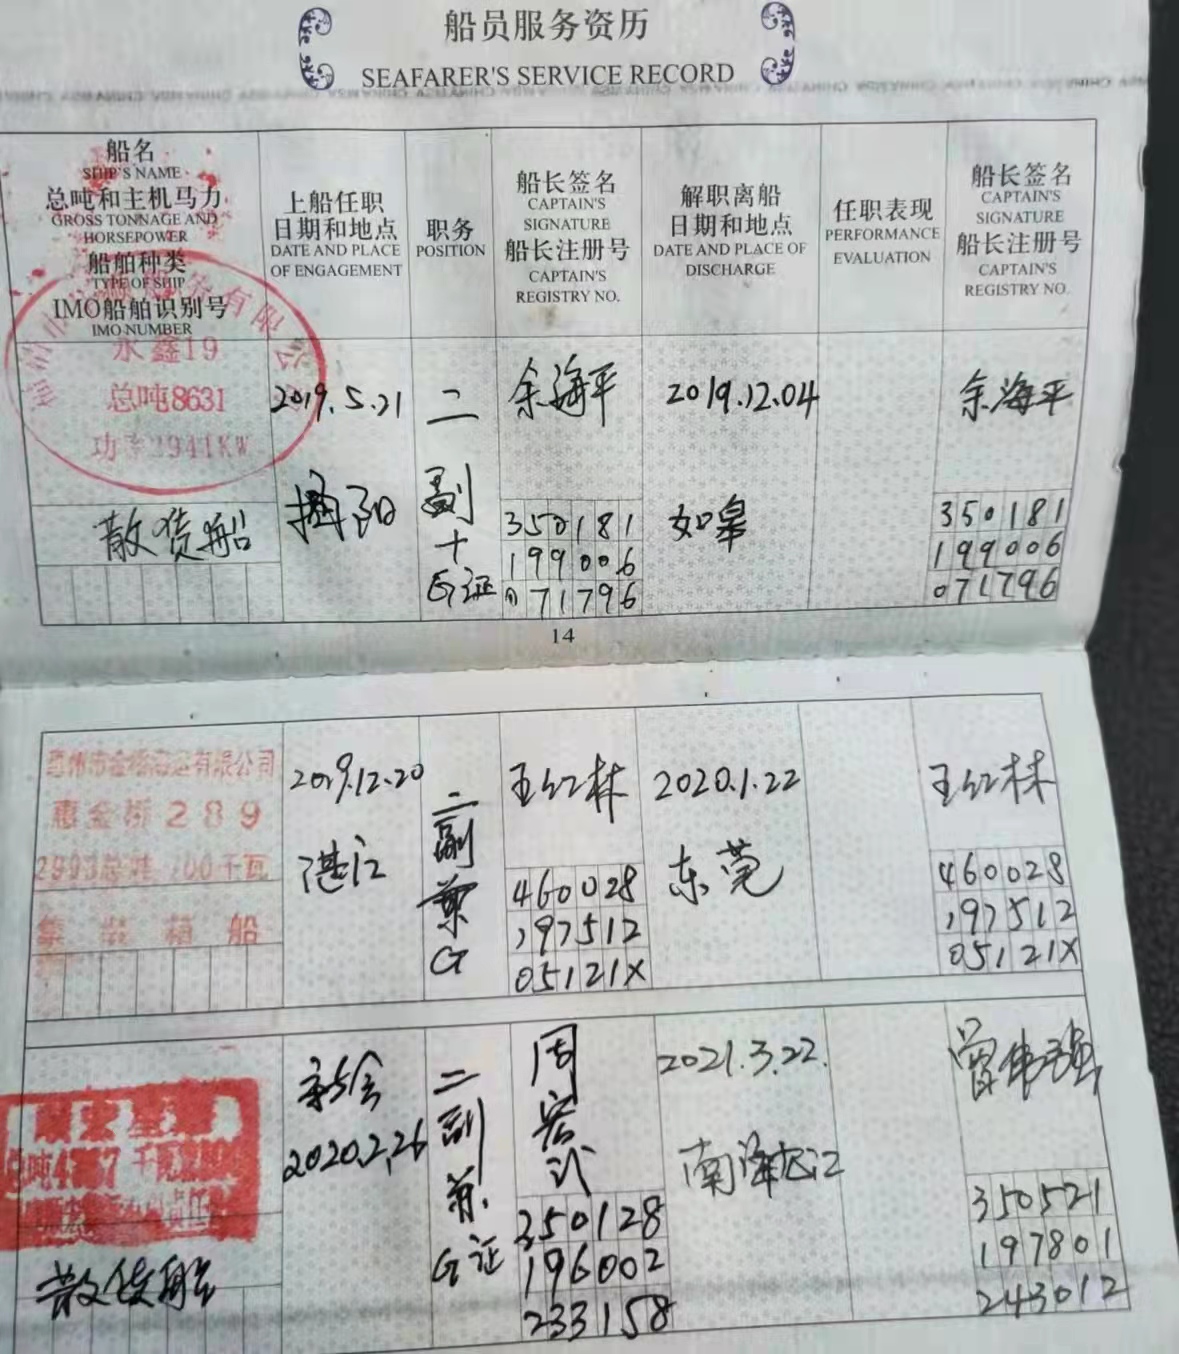 船员服务资历
SEAFARER'S SERVICE RECORD
船名
SHIP'S NAME
总吨和主机马力
GROSS TONNAGE AND
HORSEPOWER
船舶种类
TYPE OF SHIP
IMO船舶识别号
IMO NUMBER
上船任职
日期和地点
DATE AND PLACE
OF ENGAGEMENT
职务
POSITION
船长签名
CAPTAIN'S
SIGNATURE
船长注册号
CAPTAIN'S
REGISTRY NO.
解职离船
日期和地点
DATE AND PLACE OF
DISCHARGE
任职表现
PERFORMANCE
EVALUATION
船长签名
CAPTAIN'S
SIGNATURE
船长注册号
CAPTAIN'S
REGISTRY NO.
永鑫19
总吨8631
功率2941KW
散货船
2019.5.21
揭阳
二
副
十
G证
余海平
350181
199006
071796
2019.12.04
如皋
余海平
350181
199006
071796
14
惠州市金桥海运有限公司
惠金桥289
2993总吨
集装箱船
2019.12.20
湛江
二
副
兼
G
王红林
460028
197512
05121X
2020.1.22
东莞
王红林
460028
197512
05121X
散货船
新会
2020.2.26
二
副
兼
G证
周
宏
武
350128
196002
233158
2021.3.22.
南海
350521
197801
243012